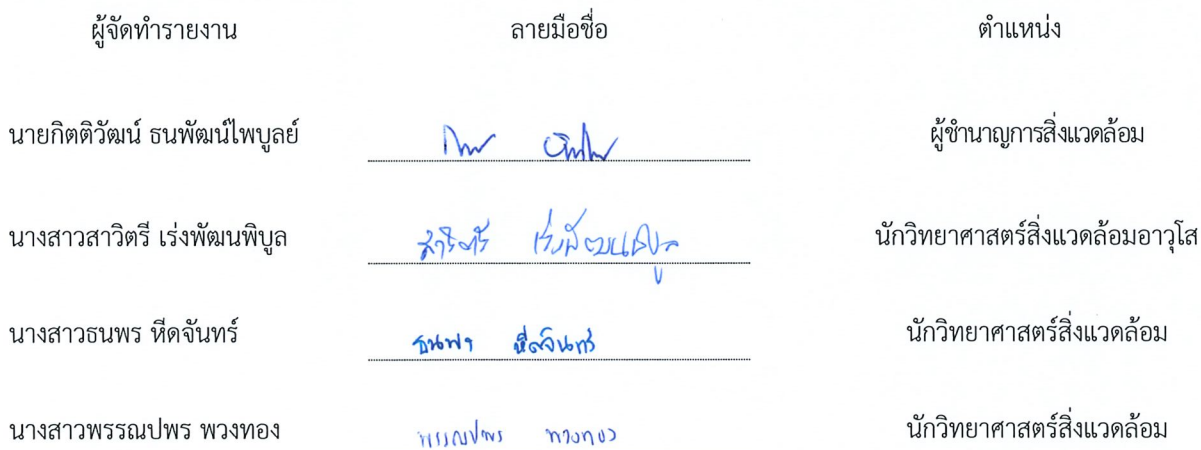 ผู้จัดทำรายงาน ลายมือชื่อ ตำแหน่ง
นายกิตติวัฒน์ ธนพัฒน์ไพบูลย์ ผู้ชำนาญการสิ่งแวดล้อม
นางสาวสาวิตรี เร่งพัฒนพิบูล สาวิตรี เร่งพัฒนพิบูล นักวิทยาศาสตร์สิ่งแวดล้อมอาวุโส
นางสาวธนพร หีดจันทร์ ธนพร หีดจันทร์ นักวิทยาศาสตร์สิ่งแวดล้อม
นางสาวพรรณปพร พวงทอง พรรณปพร พวงทอง นักวิทยาศาสตร์สิ่งแวดล้อม